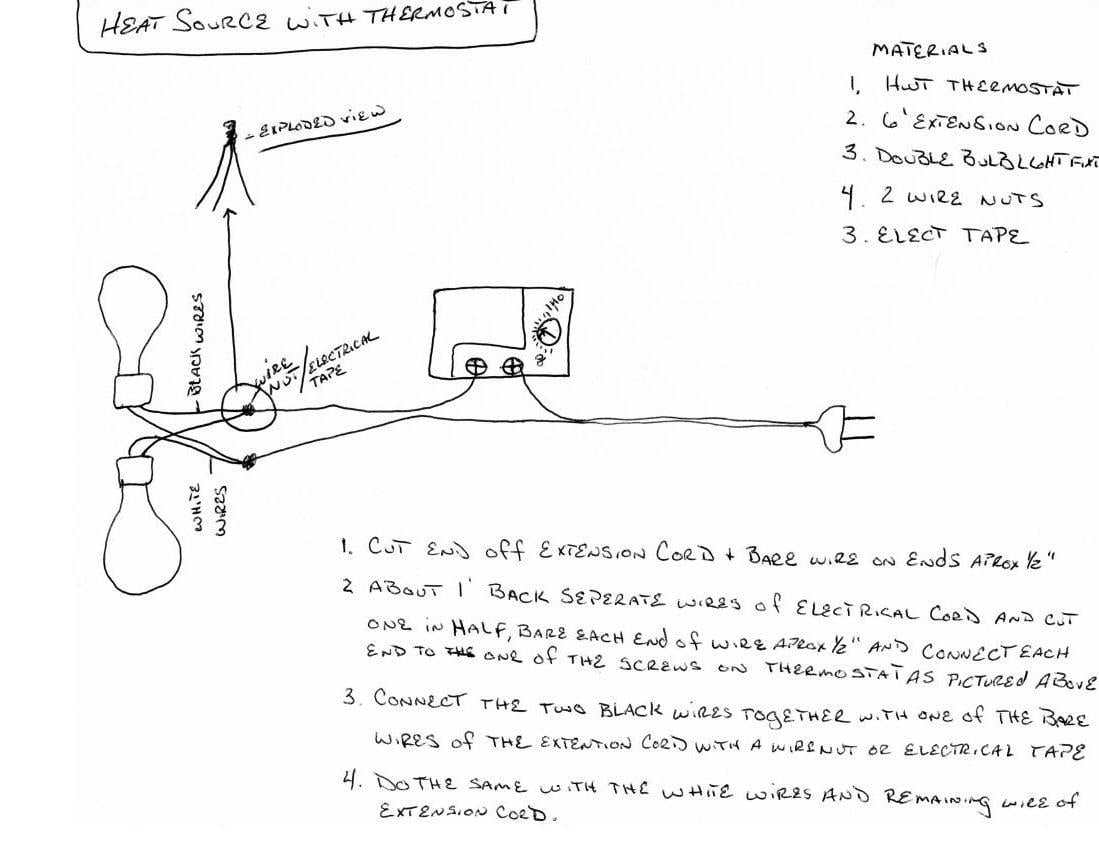 HEAT SOURCE WITH THERMOSTAT
MATERIALS
1, HWT THERMOSTAT
2. 6' EXTENSION CORD
3. DOUBLE BULB LGHT FIXT
4. 2 WIRE NUTS
3. ELECT TAPE
- EXPLODED VIEW
BLACK WIRES
WIRE NUT/ELECTRICAL TAPE
WHITE
WIRES
1. CUT END off EXTENSION CORD + BARE WIRE ON ENDS APROX 1/2"
2 ABOUT 1' BACK SEPERATE WIRES of ELECTRICAL CORD AND CUT
ONE IN HALF, BARE EACH END of WIRE APROX 1/2" AND CONNECT EACH
END TO THE ONE OF THE SCREWS ON THERMOSTAT AS PICTURED ABOVE
3. CONNECT THE TWO BLACK WIRES TOGETHER WITH ONE of THE BARE
WIRES of THE EXTENTION CORD WITH A WIRENUT OR ELECTRICAL TAPE
4. DO THE SAME WITH THE WHITE WIRES AND REMAINING WIRE of
EXTENSION CORD.